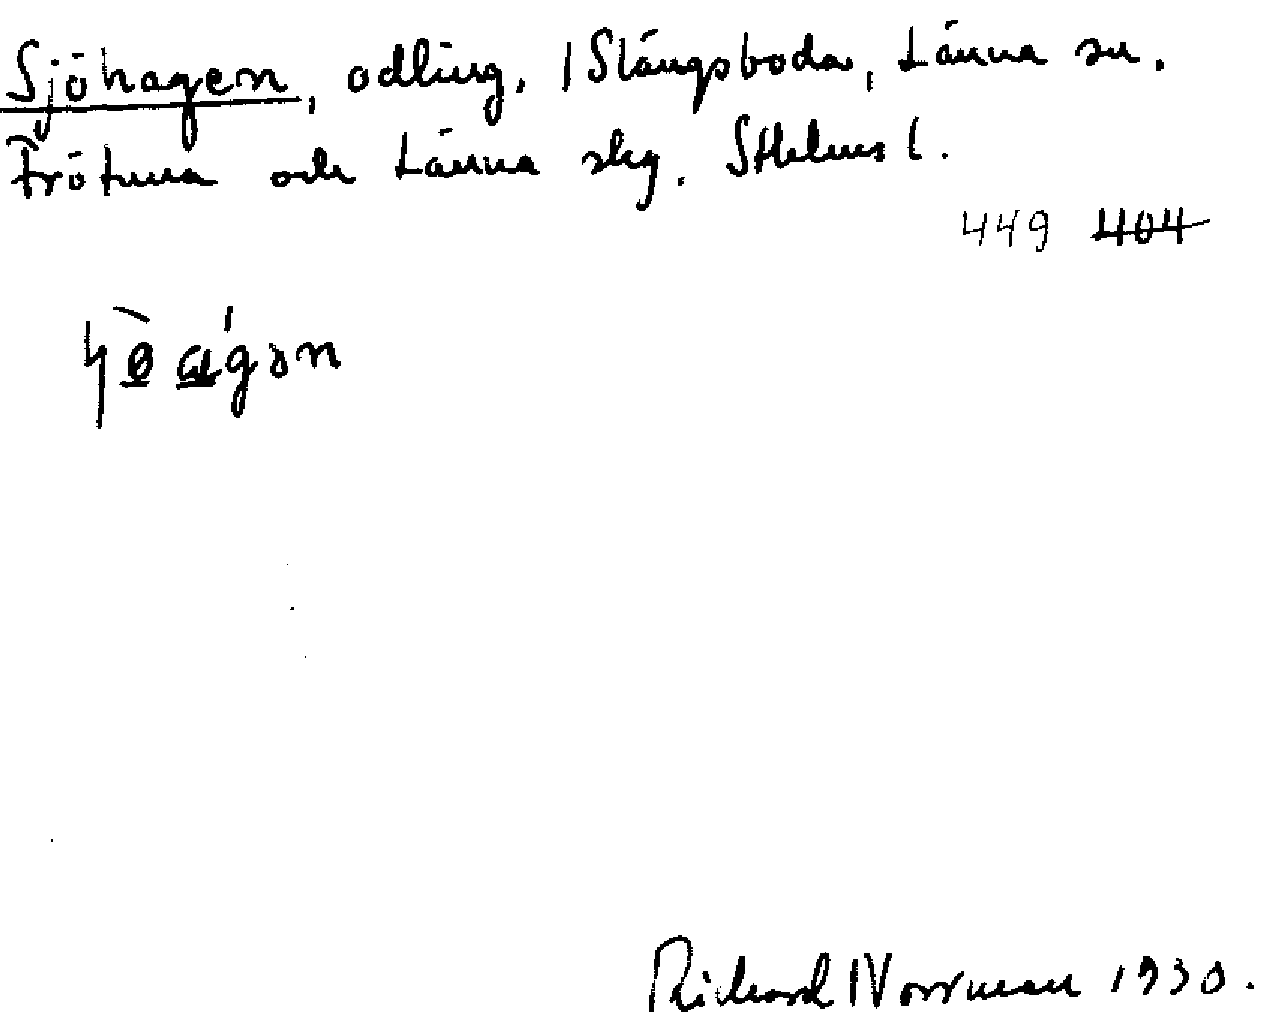 Sjöhagen, odling, 1 Slängsboda, Länna sn.
Frötuna och Länna skg. Sthlms l.
449 404
Richard Norrman 1930.